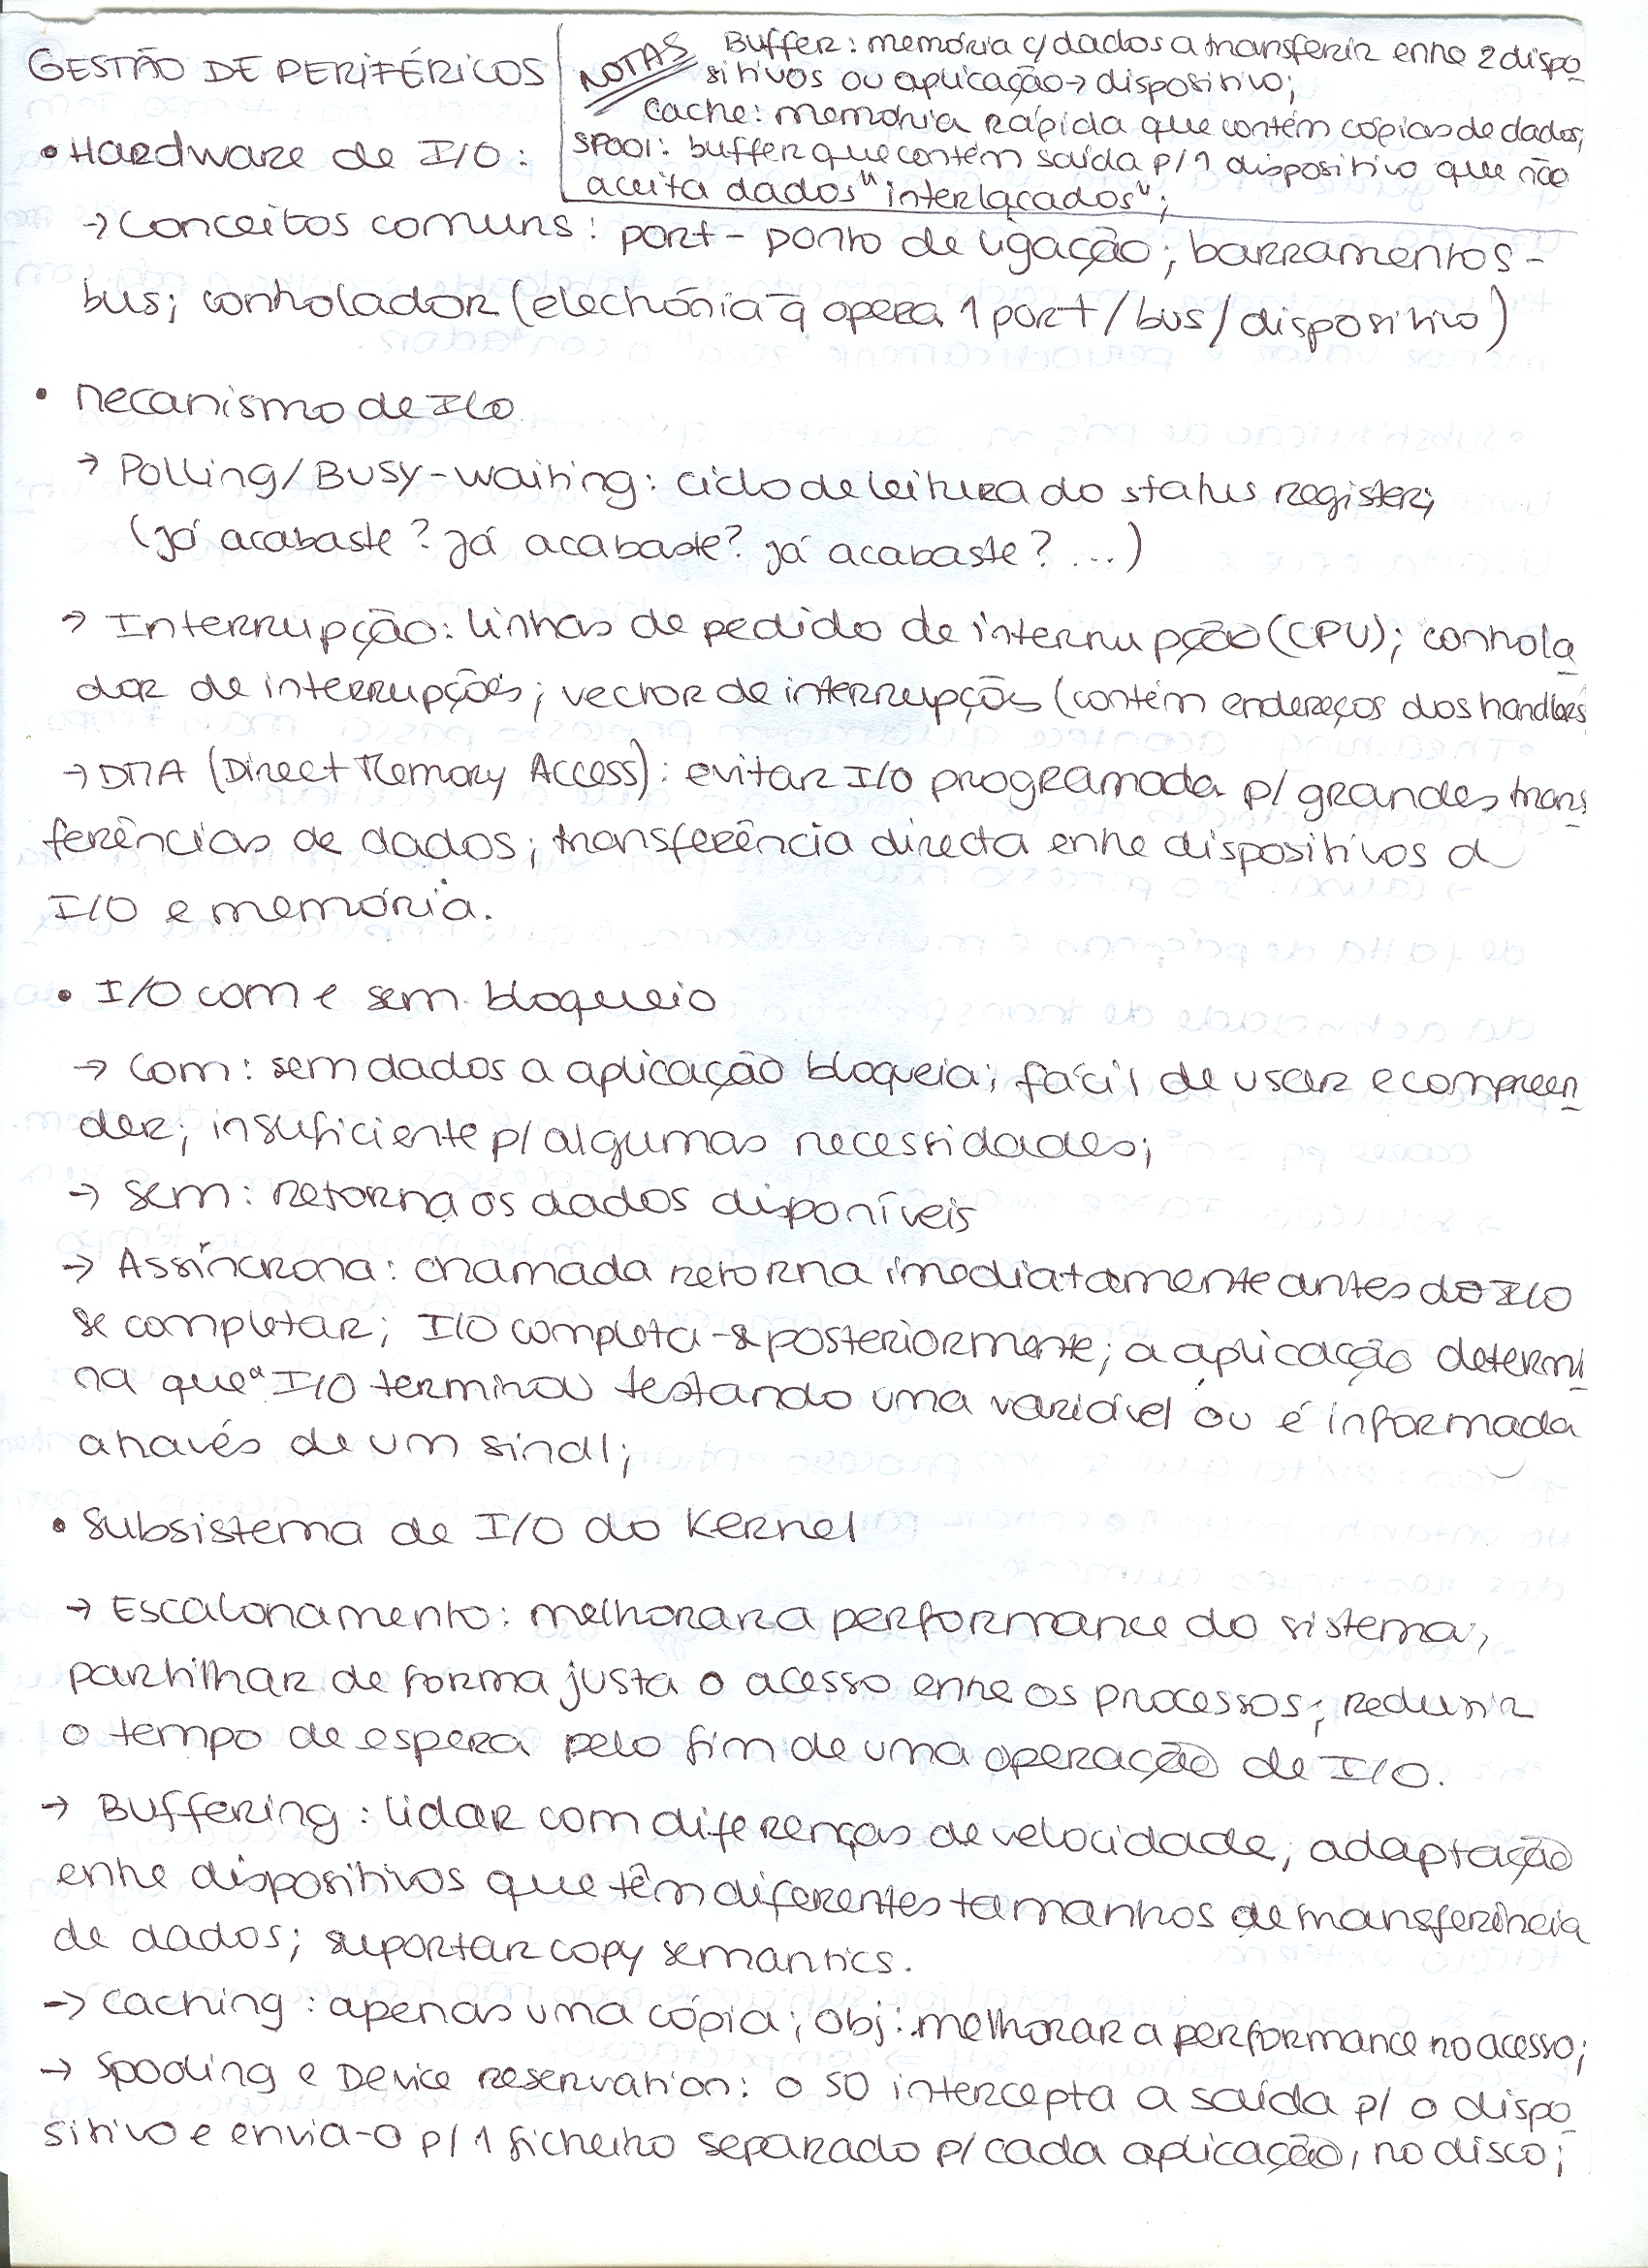 GESTÃO DE PERIFÉRICOS
NOTAS
Buffer: memória c/ dados a transferir entre 2 dispo-
sitivos ou aplicação → dispositivo;
Cache: memória rápida que contém cópias de dados;
SPOOl: buffer que contém saída p/ 1 dispositivo que não
aceita dados "interlaçados";
• Hardware de I/O:
→ Conceitos comuns: port - ponto de ligação; barramentos -
bus; controlador (electrónica q opera 1 port/bus/dispositivo)
• Mecanismo de I/O
→ Polling/Busy-waiting: ciclo de leitura do status register;
(já acabaste? já acabaste? já acabaste? ...)
→ Interrupção: linhas de pedido de interrupção (CPU); controla-
dor de interrupções; vector de interrupções (contém endereços dos handlers
→ DMA (Direct Memory Access): evitar I/O programada p/ grandes trans-
ferências de dados; transferência directa entre dispositivos d
I/O e memória.
• I/O com e sem bloqueio
→ Com: sem dados a aplicação bloqueia; fácil de usar e compreen-
der; insuficiente p/ algumas necessidades;
→ Sem: retorna os dados disponíveis
→ Assíncrona: chamada retorna imediatamente antes do I/O
se completar; I/O completa-se posteriormente; a aplicação determi-
na que a I/O terminou testando uma variável ou é informada
através de um sinal;
• Subsistema de I/O do Kernel
→ Escalonamento: melhorar a performance do sistema;
partilhar de forma justa o acesso entre os processos; reduzir
o tempo de espera pelo fim de uma operação de I/O.
→ Buffering: lidar com diferenças de velocidade; adaptação
entre dispositivos que têm diferentes tamanhos de transferência
de dados; suportar copy semantics.
→ Caching: apenas uma cópia; obj: melhorar a performance no acesso;
→ Spooling e Device reservation: o SO intercepta a saída p/ o dispo-
sitivo e envia-o p/ 1 ficheiro separado p/ cada aplicação, no disco;